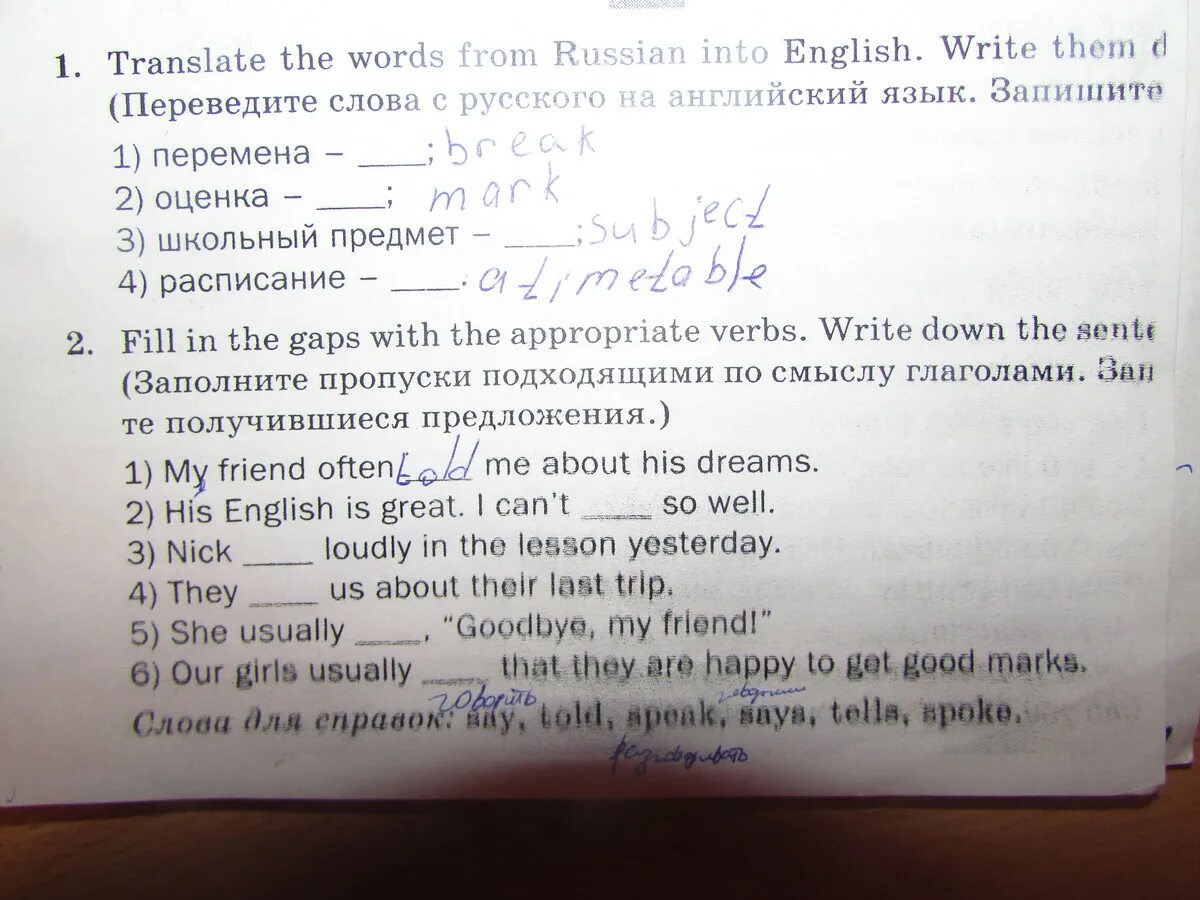 1. Translate the words from Russian into English. Write them d
(Переведите слова с русского на английский язык. Запишите
1) перемена – ____; break
2) оценка – ____; mark
3) школьный предмет – ____; subject
4) расписание – ____. a timetable
2. Fill in the gaps with the appropriate verbs. Write down the sente
(Заполните пропуски подходящими по смыслу глаголами. Зап
те получившиеся предложения.)
1) My friend often told me about his dreams.
2) His English is great. I can't ____ so well.
3) Nick ____ loudly in the lesson yesterday.
4) They ____ us about their last trip.
5) She usually ____, "Goodbye, my friend!"
6) Our girls usually ____ that they are happy to get good marks.
говорить
Слова для справок: say, told, speak, says, tells, spoke.
разговаривать